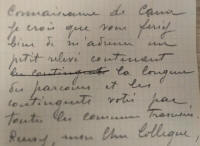 Connaissance de Cana
Je crois que vous feriez
bien de m'adresser un
petit relevé contenant
les contingents la longueur
du parcours et les
contingents votés par
toutes les communes
Recevez, mon Cher Collègue,